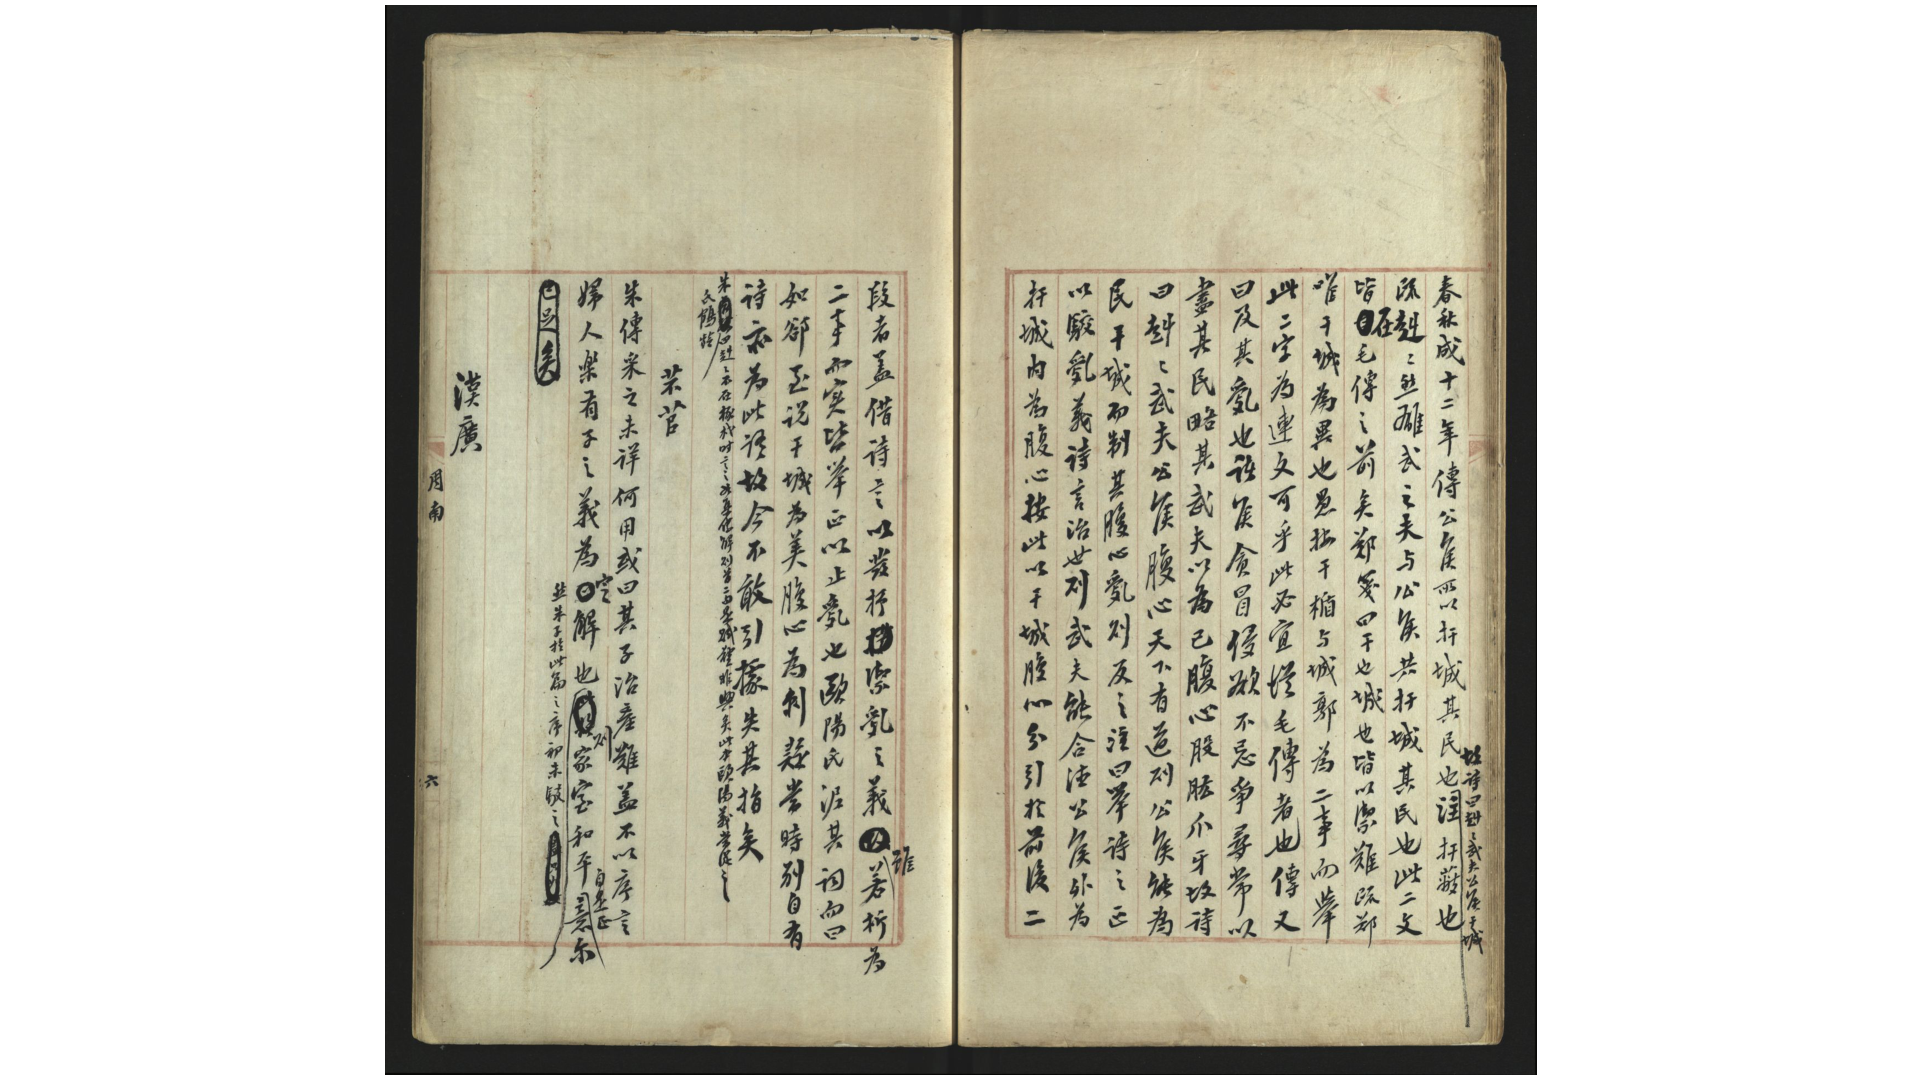 春秋成十二年傳公侯所以扞城其民也注扞蔽也
故詩曰赳〻武夫公侯干城
疏赳〻然雄武之夫与公侯共扞城其民也此二文
皆在毛傳之前矣鄭箋曰干也城也皆以禦難疏鄭
唯干城為異也愚按干楯与城郭為二事而舉
此二字為連文可乎此必宜從毛傳者也傳又
曰及其亂也諸侯貪冒侵欲不忌爭尋常以
盡其民略其武夫以為己腹心股肱爪牙故詩
曰赳〻武夫公侯腹心天下有道則公侯能為
民干城而制其腹心亂則反之注曰舉詩之正
以駮亂義詩言治世則武夫能合德公侯外為
扞城内為腹心按此以干城腹心分引於前後二
段者蓋借詩言以發抒禦亂之義雖若析為
二事而实皆举正以止亂也歐陽氏泥其詞而曰
如郤至说干城為美腹心為刺疑當時別自有
詩亦為此語故今不敢引據失其指矣
朱
氏鶴齡
曰赳〻
芣苢
朱傳采之未詳何用或曰其子治產難蓋不以序言
婦人樂有子之義為定解也則家室和平自是正意尔
然朱子於此篇之序初未駮之
漢廣
周南
六